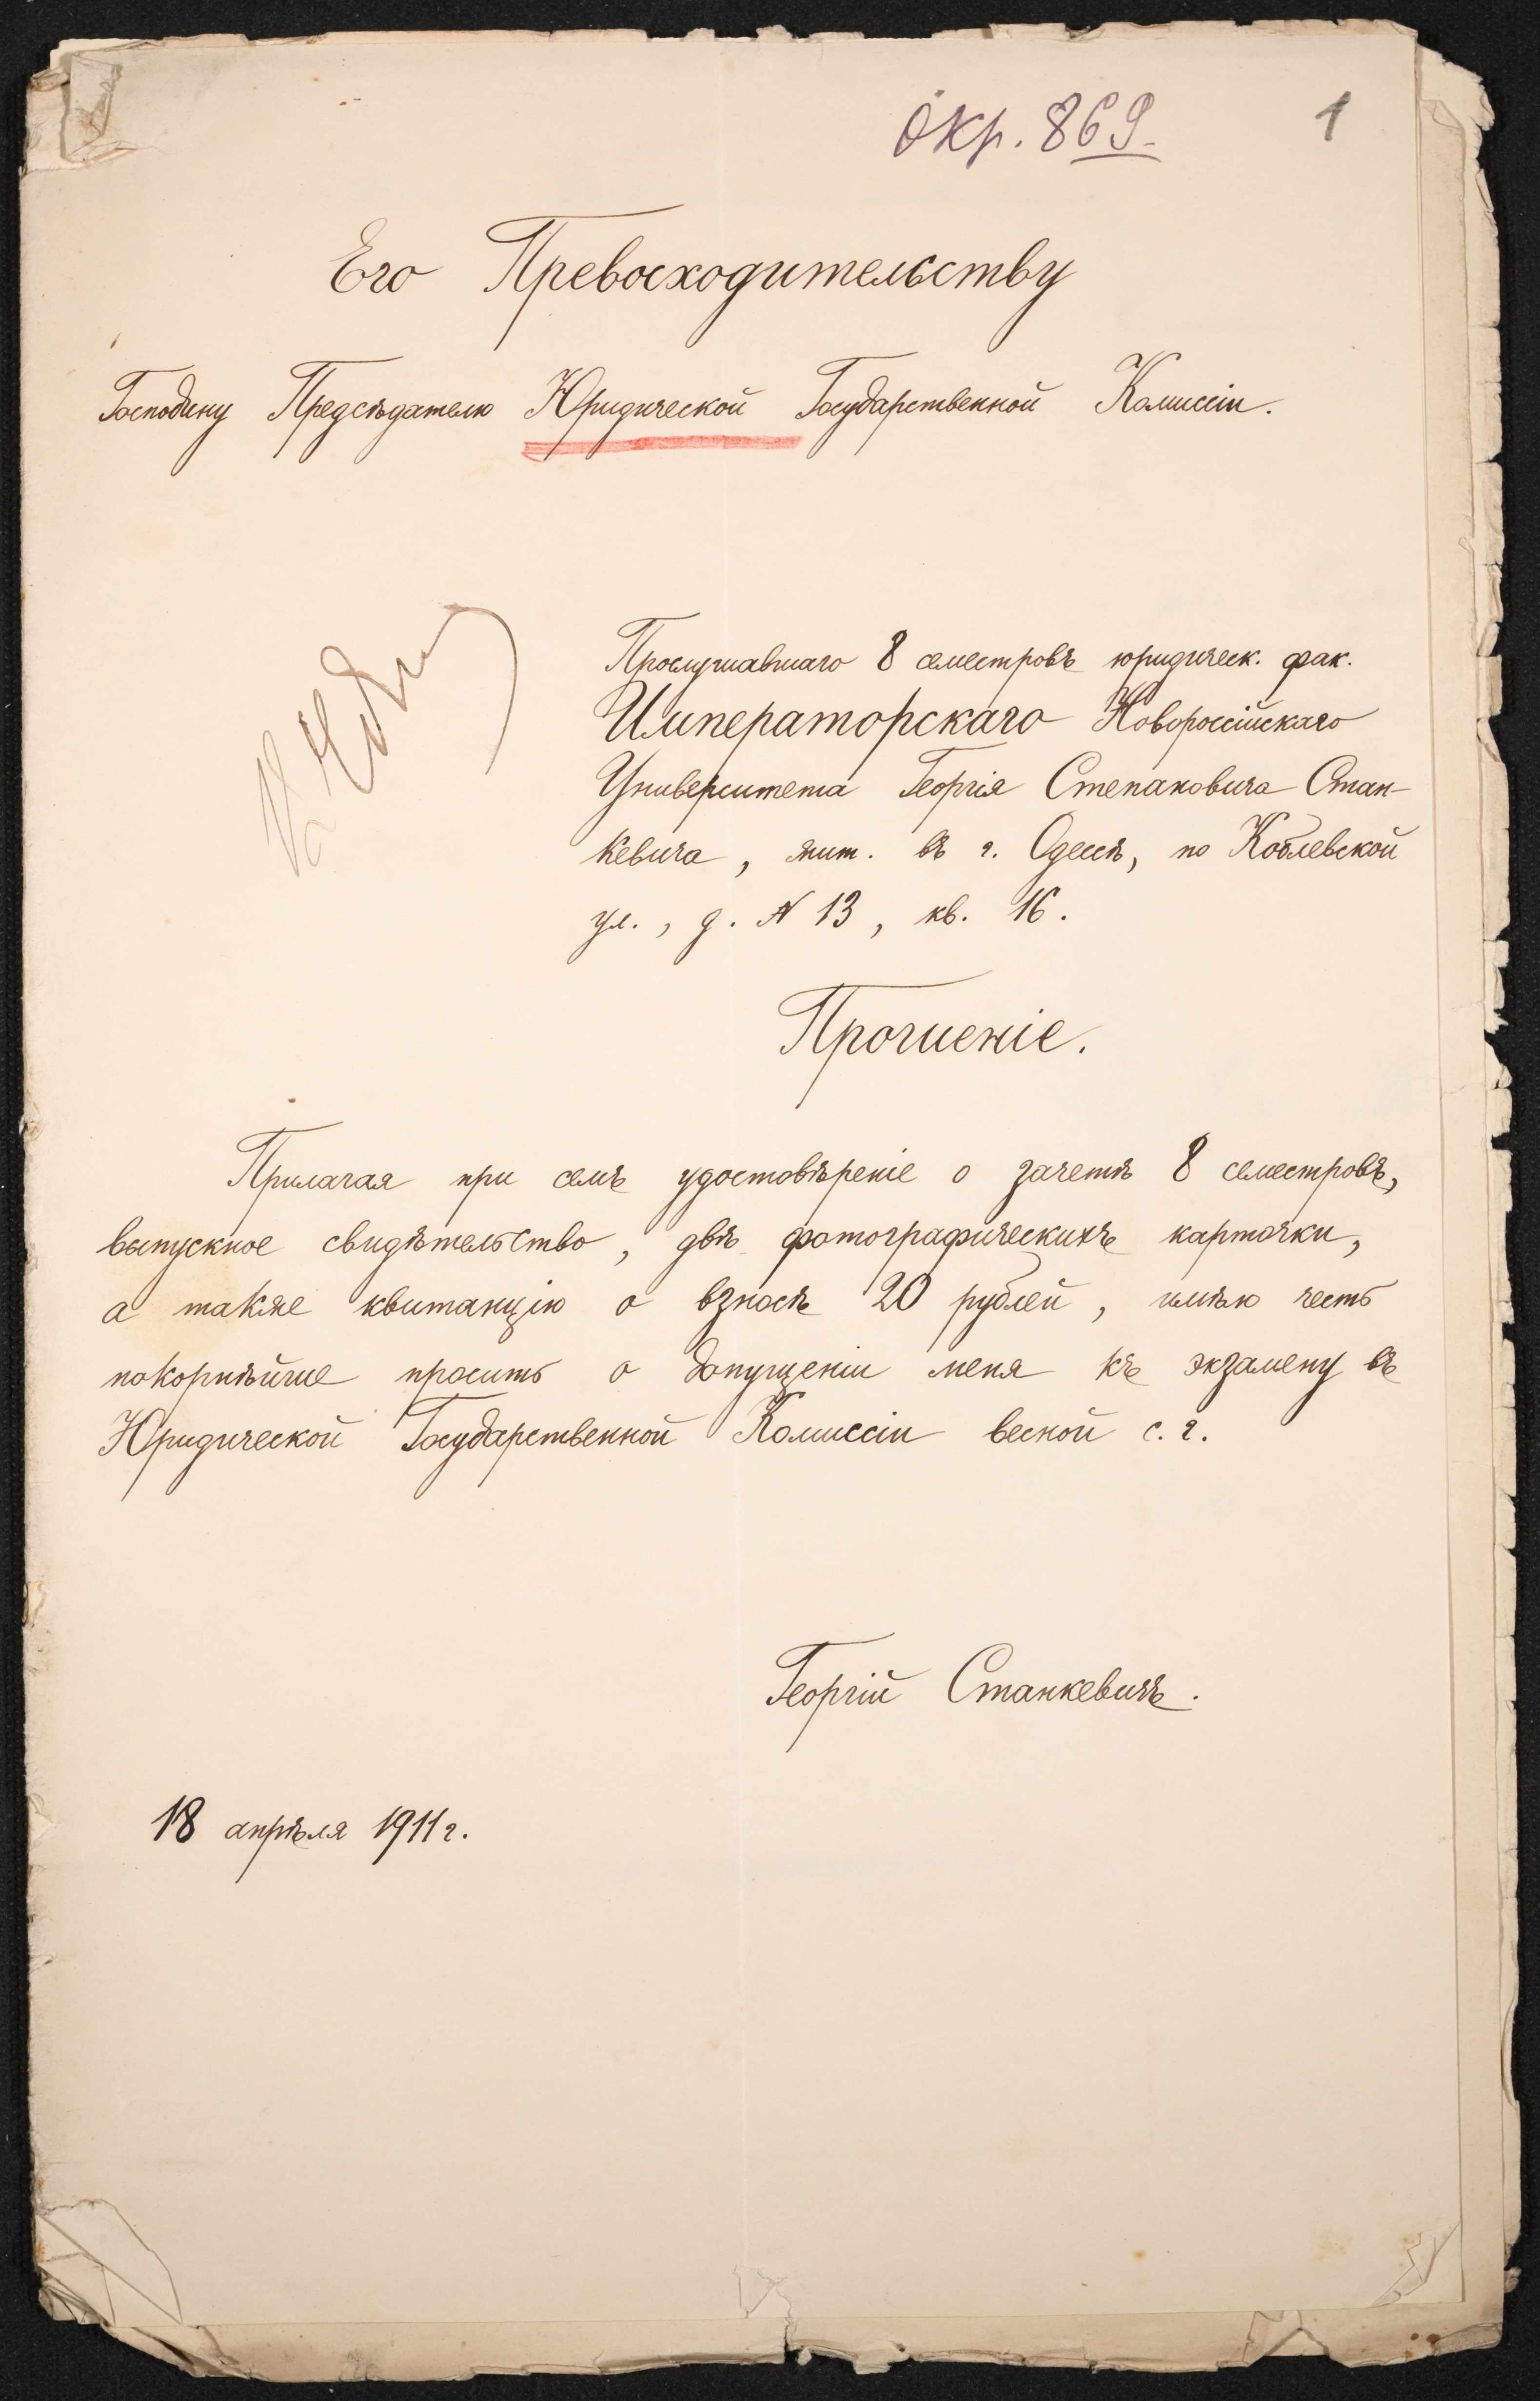 окр. 869.
1
Его Превосходительству
Господину Предсѣдателю Юридической Государственной Комиссіи.
Прослушавшаго 8 семестровъ юридическ. фак.
Императорскаго Новороссійскаго
Университета Георгія Степановича Стан-
кевича, жит. въ г. Одессѣ, по Коблевской
ул., д. № 13, кв. 16.
Прошеніе.
Прилагая при семъ удостовѣреніе о зачетѣ 8 семестровъ,
выпускное свидѣтельство, двѣ фотографическихъ карточки,
а также квитанцію о взносѣ 20 рублей, имѣю честь
покорнѣйше просить о допущеніи меня къ экзамену въ
Юридической Государственной Комиссіи весной с. г.
Георгій Станкевичъ.
18 апрѣля 1911 г.